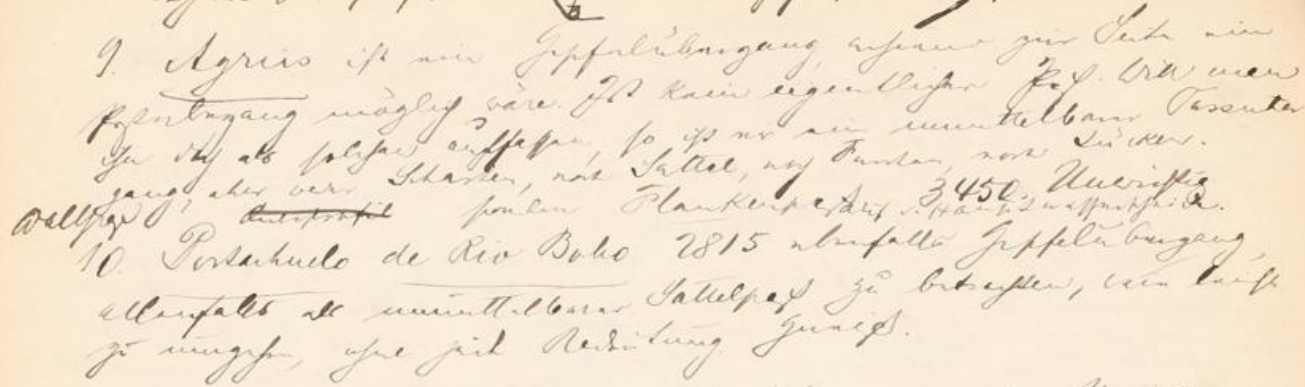 9. Agrias ist ein Gipfelübergang, wo zur Seite ein
Paßübergang möglich wäre. Ist kein eigentlicher Paß. Will man
ihn doch als solchen auffassen, so ist er ein unmittelbarer
gang, aber weder Scharten, noch Sattel, noch Furchen, noch Lücken.
Wallpaß sondern Flankenpaß auf 3450. Unwichtig
10. Portachuelo de Rio Bobo 2815 ebenfalls Gipfelübergang,
allenfalls als unmittelbarer Sattelpaß zu betrachten, leicht
zu umgehen, ohne jede Bedeutung